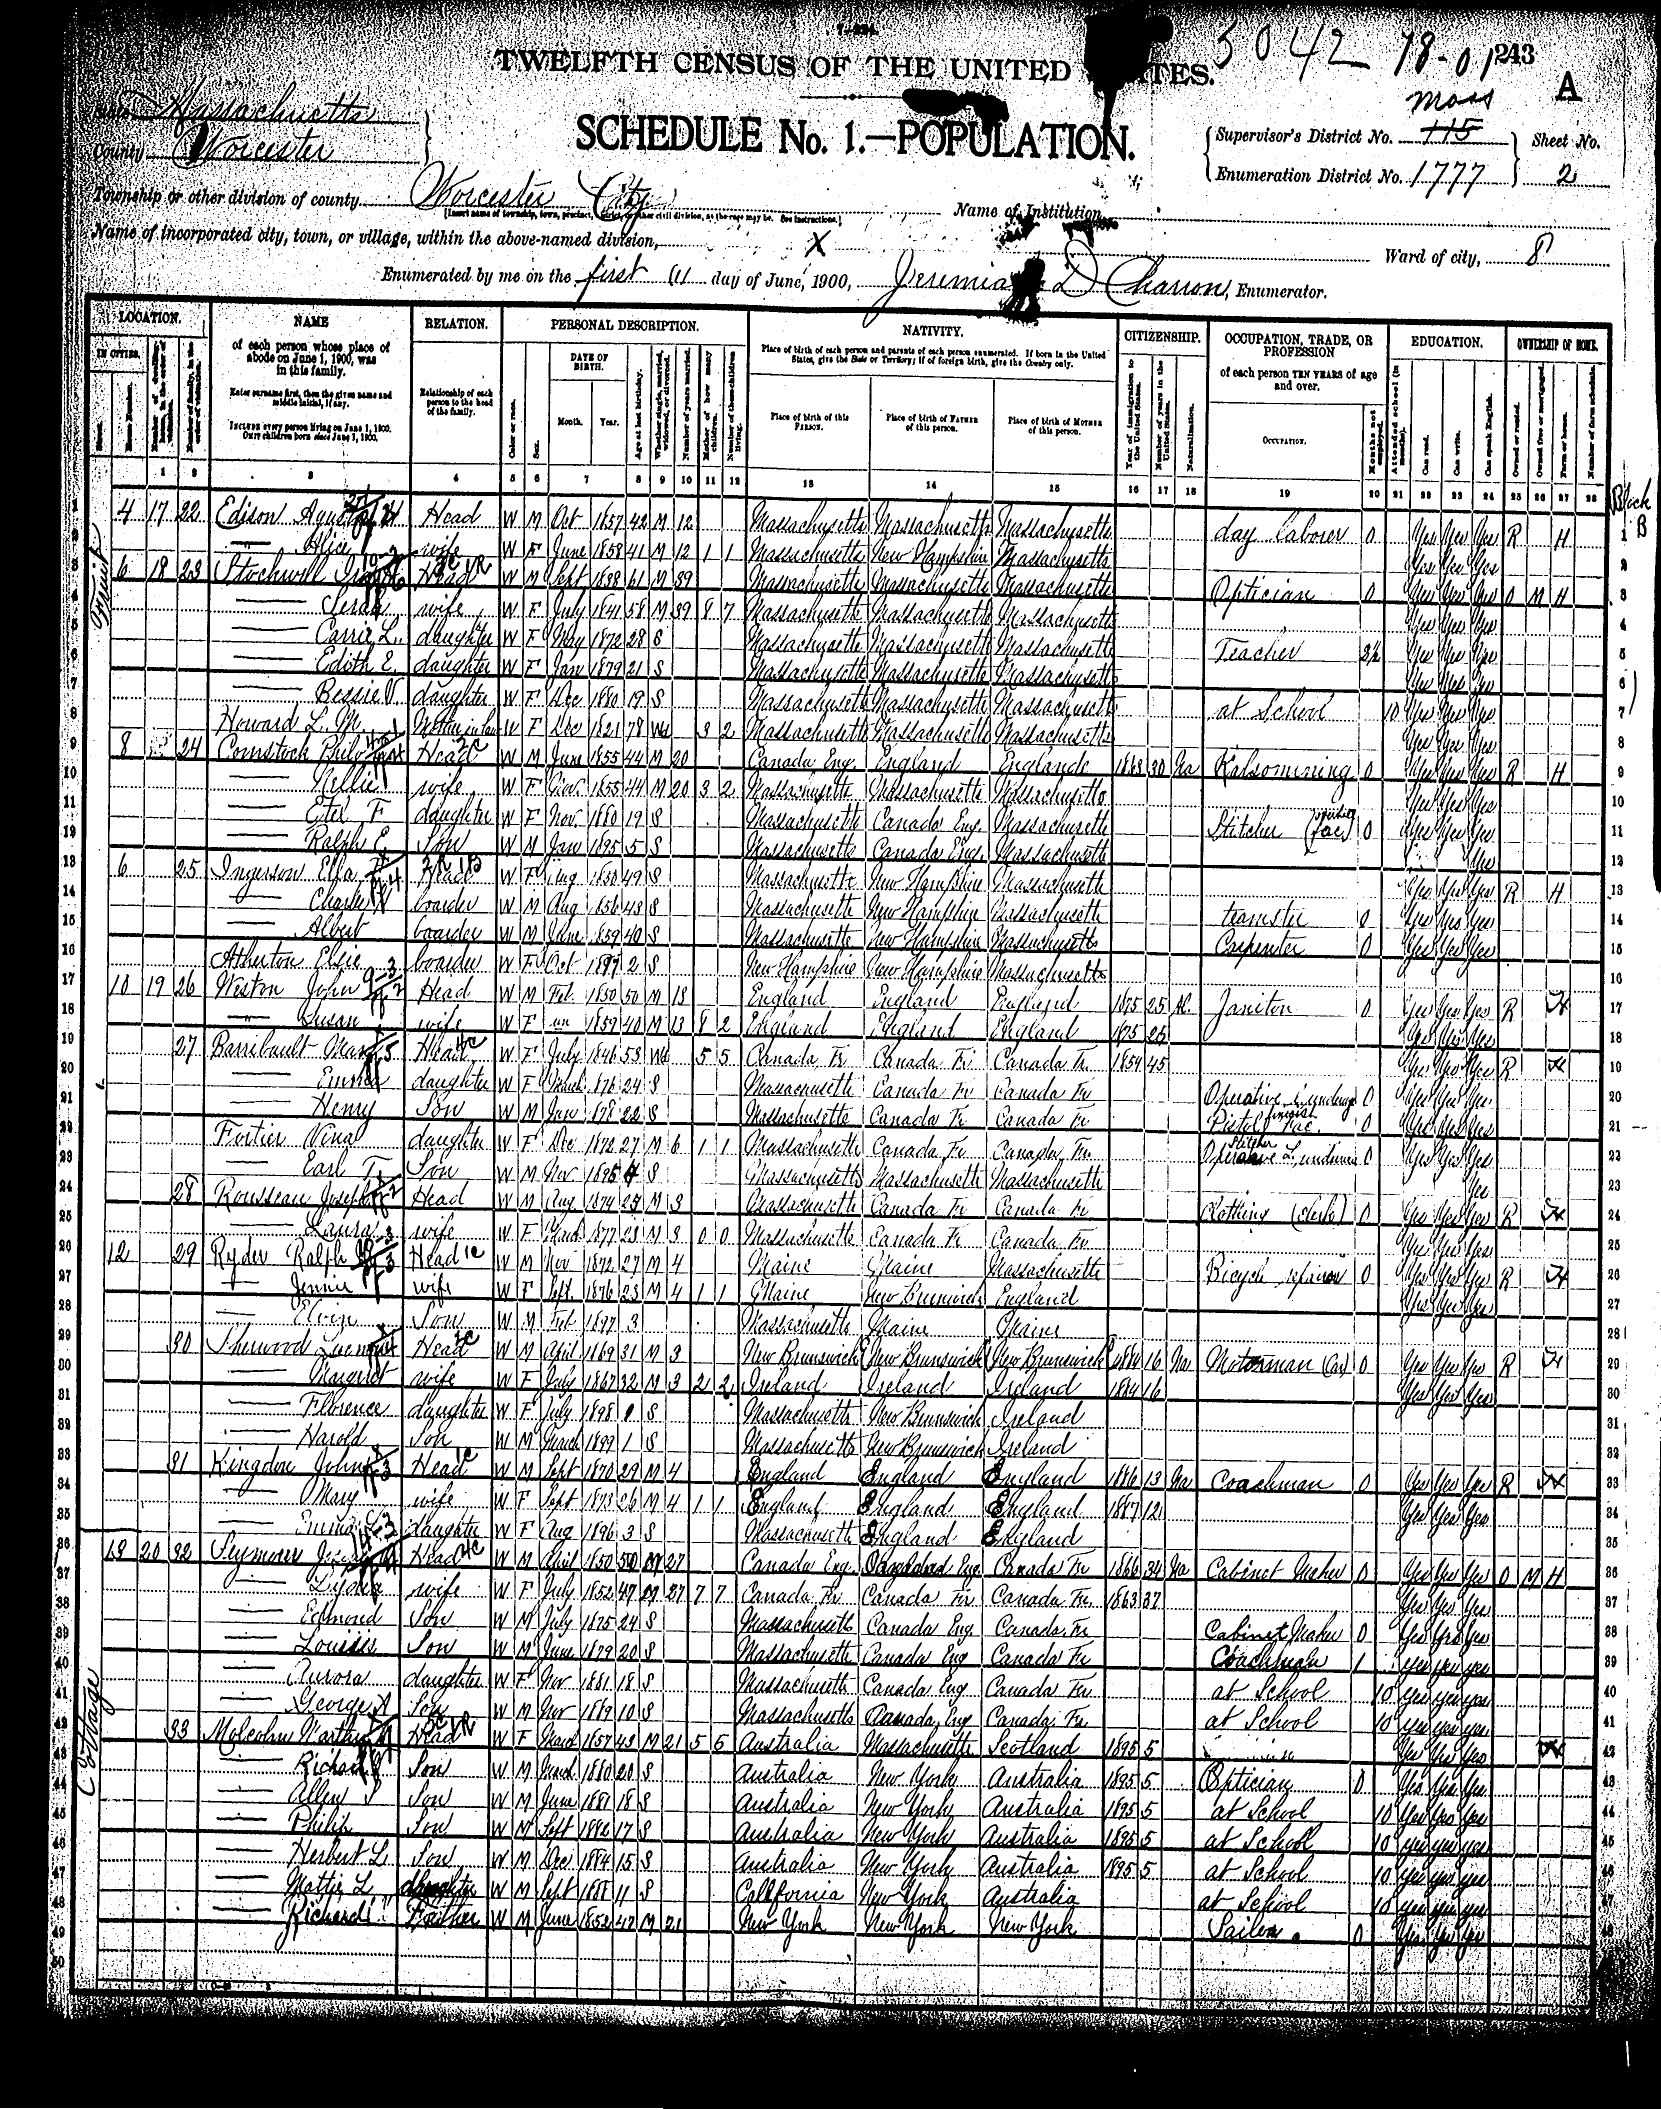 TWELFTH CENSUS OF THE UNITED
5042 78-01 243
Mass
A
State Massachusetts
County Worcester
SCHEDULE No. 1.—POPULATION.
Supervisor's District No. 115
Enumeration District No. 1777
Sheet No. 2
Township or other division of county Worcester City
[Insert name of township, town, precinct, district, or other civil division, as the case may be. See instructions.]
Name of Institution,
Name of incorporated city, town, or village, within the above-named division, X
Ward of city, 8
Enumerated by me on the first (1) day of June, 1900, D Charron, Enumerator.
LOCATION. NAME RELATION. PERSONAL DESCRIPTION. NATIVITY. CITIZENSHIP. OCCUPATION, TRADE, OR PROFESSION EDUCATION. OWNERSHIP OF HOME.
IN CITIES.
of each person whose place of abode on June 1, 1900, was in this family.
Enter surname first, then the given name and middle initial, if any.
INCLUDE every person living on June 1, 1900. OMIT children born since June 1, 1900.
Relationship of each person to the head of the family.
DATE OF BIRTH.
Month. Year.
Place of birth of each person and parents of each person enumerated. If born in the United States, give the State or Territory; if of foreign birth, give the Country only.
Place of birth of this PERSON. Place of birth of FATHER of this person. Place of birth of MOTHER of this person.
of each person TEN YEARS of age and over.
OCCUPATION.
1 2 3 4 5 6 7 8 9 10 11 12 13 14 15 16 17 18 19 20 21 22 23 24 25 26 27 28
Block B
Fruit
4 17 22 Edison Head W M Oct 1857 42 M 12 Massachusetts Massachusetts Massachusetts day laborer 0 Yes Yes Yes R H
Alice wife W F June 1858 41 M 12 1 1 Massachusetts New Hampshire Massachusetts Yes Yes Yes
6 18 23 Stockwell Head W M Sept 1838 61 M 39 Massachusetts Massachusetts Massachusetts Optician 0 Yes Yes Yes O M H
wife W F July 1841 58 M 39 8 7 Massachusetts Massachusetts Massachusetts Yes Yes Yes
Carrie L. daughter W F May 1872 28 S Massachusetts Massachusetts Massachusetts Teacher 2½ Yes Yes Yes
Edith E. daughter W F Jan 1879 21 S Massachusetts Massachusetts Massachusetts Yes Yes Yes
Bessie V. daughter W F Dec 1880 19 S Massachusetts Massachusetts Massachusetts at School 10 Yes Yes Yes
Howard L. M. Mother in law W F Dec 1821 78 Wd 3 2 Massachusetts Massachusetts Massachusetts Yes Yes Yes
8 24 Comstock Head W M June 1855 44 M 20 Canada Eng. England England 30 Na Kalsomining 0 Yes Yes Yes R H
Nellie wife W F Nov. 1855 44 M 20 3 2 Massachusetts Massachusetts Massachusetts Yes Yes Yes
Etel F daughter W F Nov. 1880 19 S Massachusetts Canada Eng. Massachusetts Stitcher 0 Yes Yes Yes
Ralph E. Son W M Jan 1895 5 S Massachusetts Canada Eng. Massachusetts Yes
6 25 Ingerson Ella Head W F Aug 1850 49 S Massachusetts New Hampshire Massachusetts Yes Yes Yes R H
Charles boarder W M Aug 1856 43 S Massachusetts New Hampshire Massachusetts teamster 0 Yes Yes Yes
Albert boarder W M June 1859 40 S Massachusetts New Hampshire Massachusetts Carpenter 0 Yes Yes Yes
Atherton Elsie boarder W F Oct 1897 2 S New Hampshire New Hampshire Massachusetts
10 19 26 Weston John Head W M Feb. 1850 50 M 13 England England England 1875 25 Al. Janitor 0 Yes Yes Yes R H
Susan wife W F 1859 40 M 13 8 2 England England England 1875 25 Yes Yes Yes
27 Barribault Mary Head W F July 1846 53 Wd 5 5 Canada Fr Canada Fr Canada Fr. 1854 45 Yes Yes Yes R
Emma daughter W F March 1876 24 S Massachusetts Canada Fr Canada Fr Operative 0 Yes Yes Yes
Henry Son W M Jan 1878 22 S Massachusetts Canada Fr Canada Fr Pistol Fac. 0 Yes Yes Yes
Fortier Vina daughter W F Dec 1872 27 M 6 1 1 Massachusetts Canada Fr Canada Fr. 0 Yes Yes Yes
Earl T. Son W M Nov 1895 4 S Massachusetts Massachusetts Massachusetts Yes
28 Rousseau Joseph Head W M Aug 1874 25 M 3 Massachusetts Canada Fr Canada Fr Clothing (clerk) 0 Yes Yes Yes R
Laura wife W F March 1877 23 M 3 0 0 Massachusetts Canada Fr Canada Fr Yes Yes Yes
12 29 Ryder Ralph Head W M Nov 1872 27 M 4 Maine Maine Massachusetts Bicycle repairer 0 Yes Yes Yes R
Jennie wife W F Sept. 1876 23 M 4 1 1 Maine New Brunswick England Yes Yes Yes
Son W M Feb 1897 3 Massachusetts Maine Maine
30 Sherwood Head W M April 1869 31 M 3 New Brunswick New Brunswick New Brunswick 1884 16 Na Motorman (Car) 0 Yes Yes Yes R
Margret wife W F July 1867 32 M 3 2 2 Ireland Ireland Ireland 1884 16 Yes Yes Yes
Florence daughter W F July 1898 1 S Massachusetts New Brunswick Ireland
Harold Son W M March 1899 1 S Massachusetts New Brunswick Ireland
31 Kingdon John Head W M Sept 1870 29 M 4 England England England 1886 13 Na Coachman 0 Yes Yes Yes R
Mary wife W F Sept 1873 26 M 4 1 1 England England England 1887 12 Yes Yes Yes
daughter W F Aug 1896 3 S Massachusetts England England
Cottage
13 20 32 Seymour Head W M April 1850 50 M 27 Canada Eng. Canada Eng. Canada Fr 1866 34 Na Cabinet Maker 0 Yes Yes Yes O M H
Lydia wife W F July 1852 47 M 27 7 7 Canada Fr Canada Fr Canada Fr. 1863 37 Yes Yes Yes
Edmond Son W M July 1875 24 S Massachusetts Canada Eng Canada Fr Cabinet Maker 0 Yes Yes Yes
Louis Son W M June 1879 20 S Massachusetts Canada Eng Canada Fr Coachman 1 yes yes yes
Aurora daughter W F Nov 1881 18 S Massachusetts Canada Eng Canada Fr at School 10 yes yes yes
George A Son W M Nov 1889 10 S Massachusetts Canada Eng Canada Fr. at School 10 yes yes yes
33 Head W F March 1857 43 M 21 5 5 Australia Massachusetts Scotland 1895 5 Yes Yes Yes
Richard Son W M March 1880 20 S Australia New York Australia 1895 5 Optician 0 Yes Yes Yes
Allen Son W M June 1881 18 S Australia New York Australia 1895 5 at School 10 Yes Yes Yes
Philip Son W M Sept 1882 17 S Australia New York Australia 1895 5 at School 10 yes yes yes
Herbert L. Son W M Dec 1884 15 S Australia New York Australia 1895 5 at School 10 yes yes yes
Mattie L daughter W M Sept 1888 11 S California New York Australia at School 10 yes yes yes
Richard Father W M June 1852 47 M 21 New York New York New York Sailor 0 Yes Yes Yes